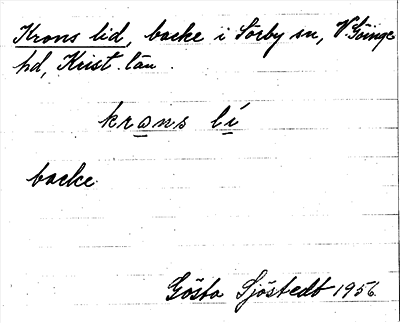 Krons lid, backe i Sörby sn, V. Göinge
hd, Krist. län.
krans lí
backe.
Gösta Sjöstedt 1956.